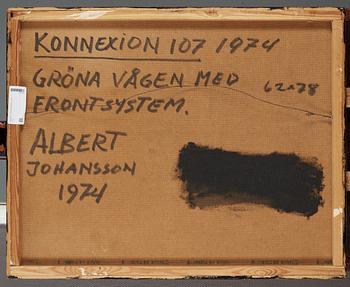 KONNEXION 107 1974
GRÖNA VÅGEN MED 62x78
FRONTSYSTEM.
ALBERT
JOHANSSON
1974